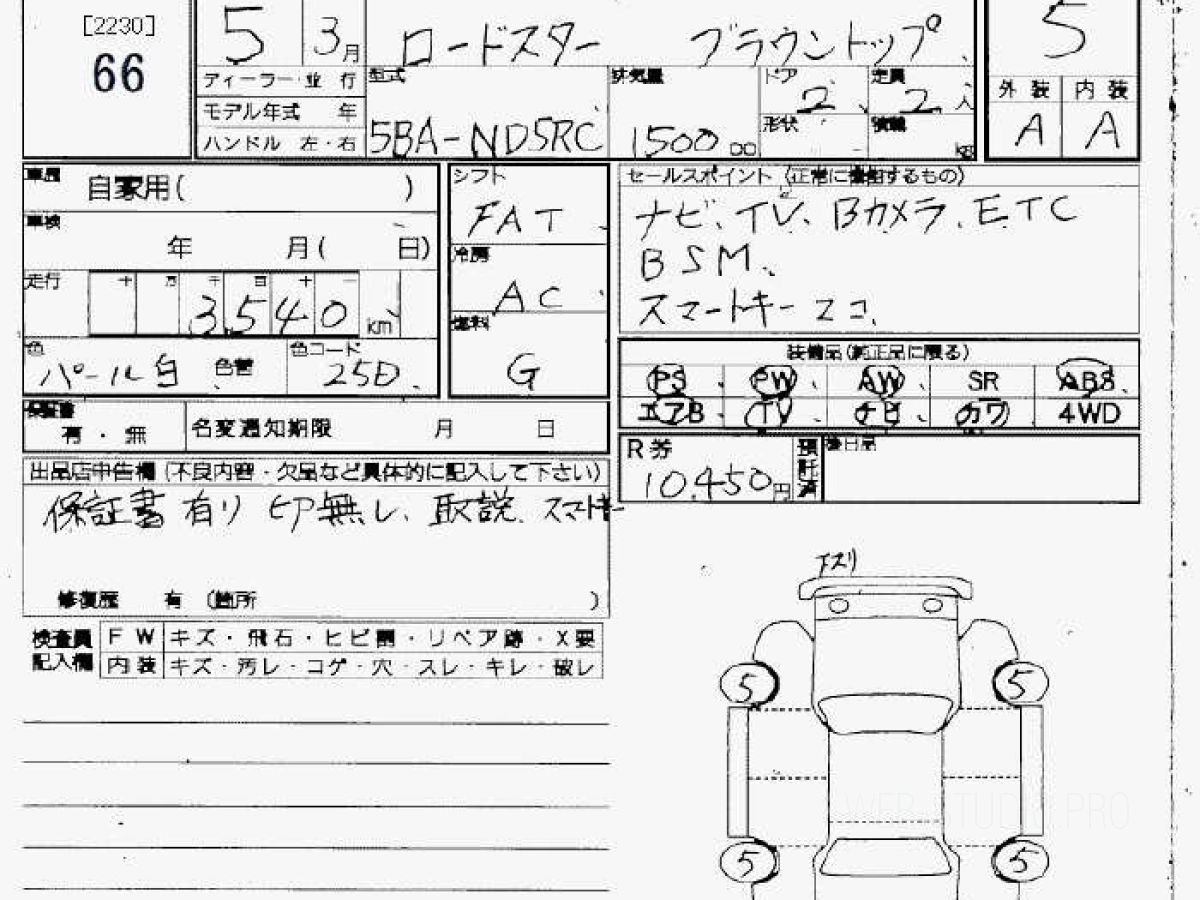 [2230]
66
5 3月 ロードスター ブラウントップ 5
ディーラー・並 行 型式 排気量 ドア 2 定員 2人 外 装 内 装
モデル年式 年 A A
ハンドル 左・右 5BA-ND5RC 1500 cc 形状 積載 kg
車歴 自家用( )
車検 年 月( 日)
走行 十 万 千 百 十 一
3540 km
色 パール白 色替 色コード 25D
シフト
FAT
冷房
AC
燃料
G
セールスポイント (正常に機能するもの)
ナビ、TV、Bカメラ、ETC
BSM、
スマートキー 2コ、
装備品(純正品に限る)
PS PW AW SR ABS
エアB TV ナビ カワ 4WD
保証書 有・無 名変通知期限 月 日
R券 10,450円 預託済 後日品
出品店申告欄(不良内容・欠品など具体的に記入して下さい)
保証書有り 印無し、取説、スマトキー
修復歴 有 (箇所 )
検査員記入欄
FW キズ・飛石・ヒビ割・リペア跡・X要
内装 キズ・汚レ・コゲ・穴・スレ・キレ・破レ
下スリ
5 5
5 5
WEB STUDIO PRO